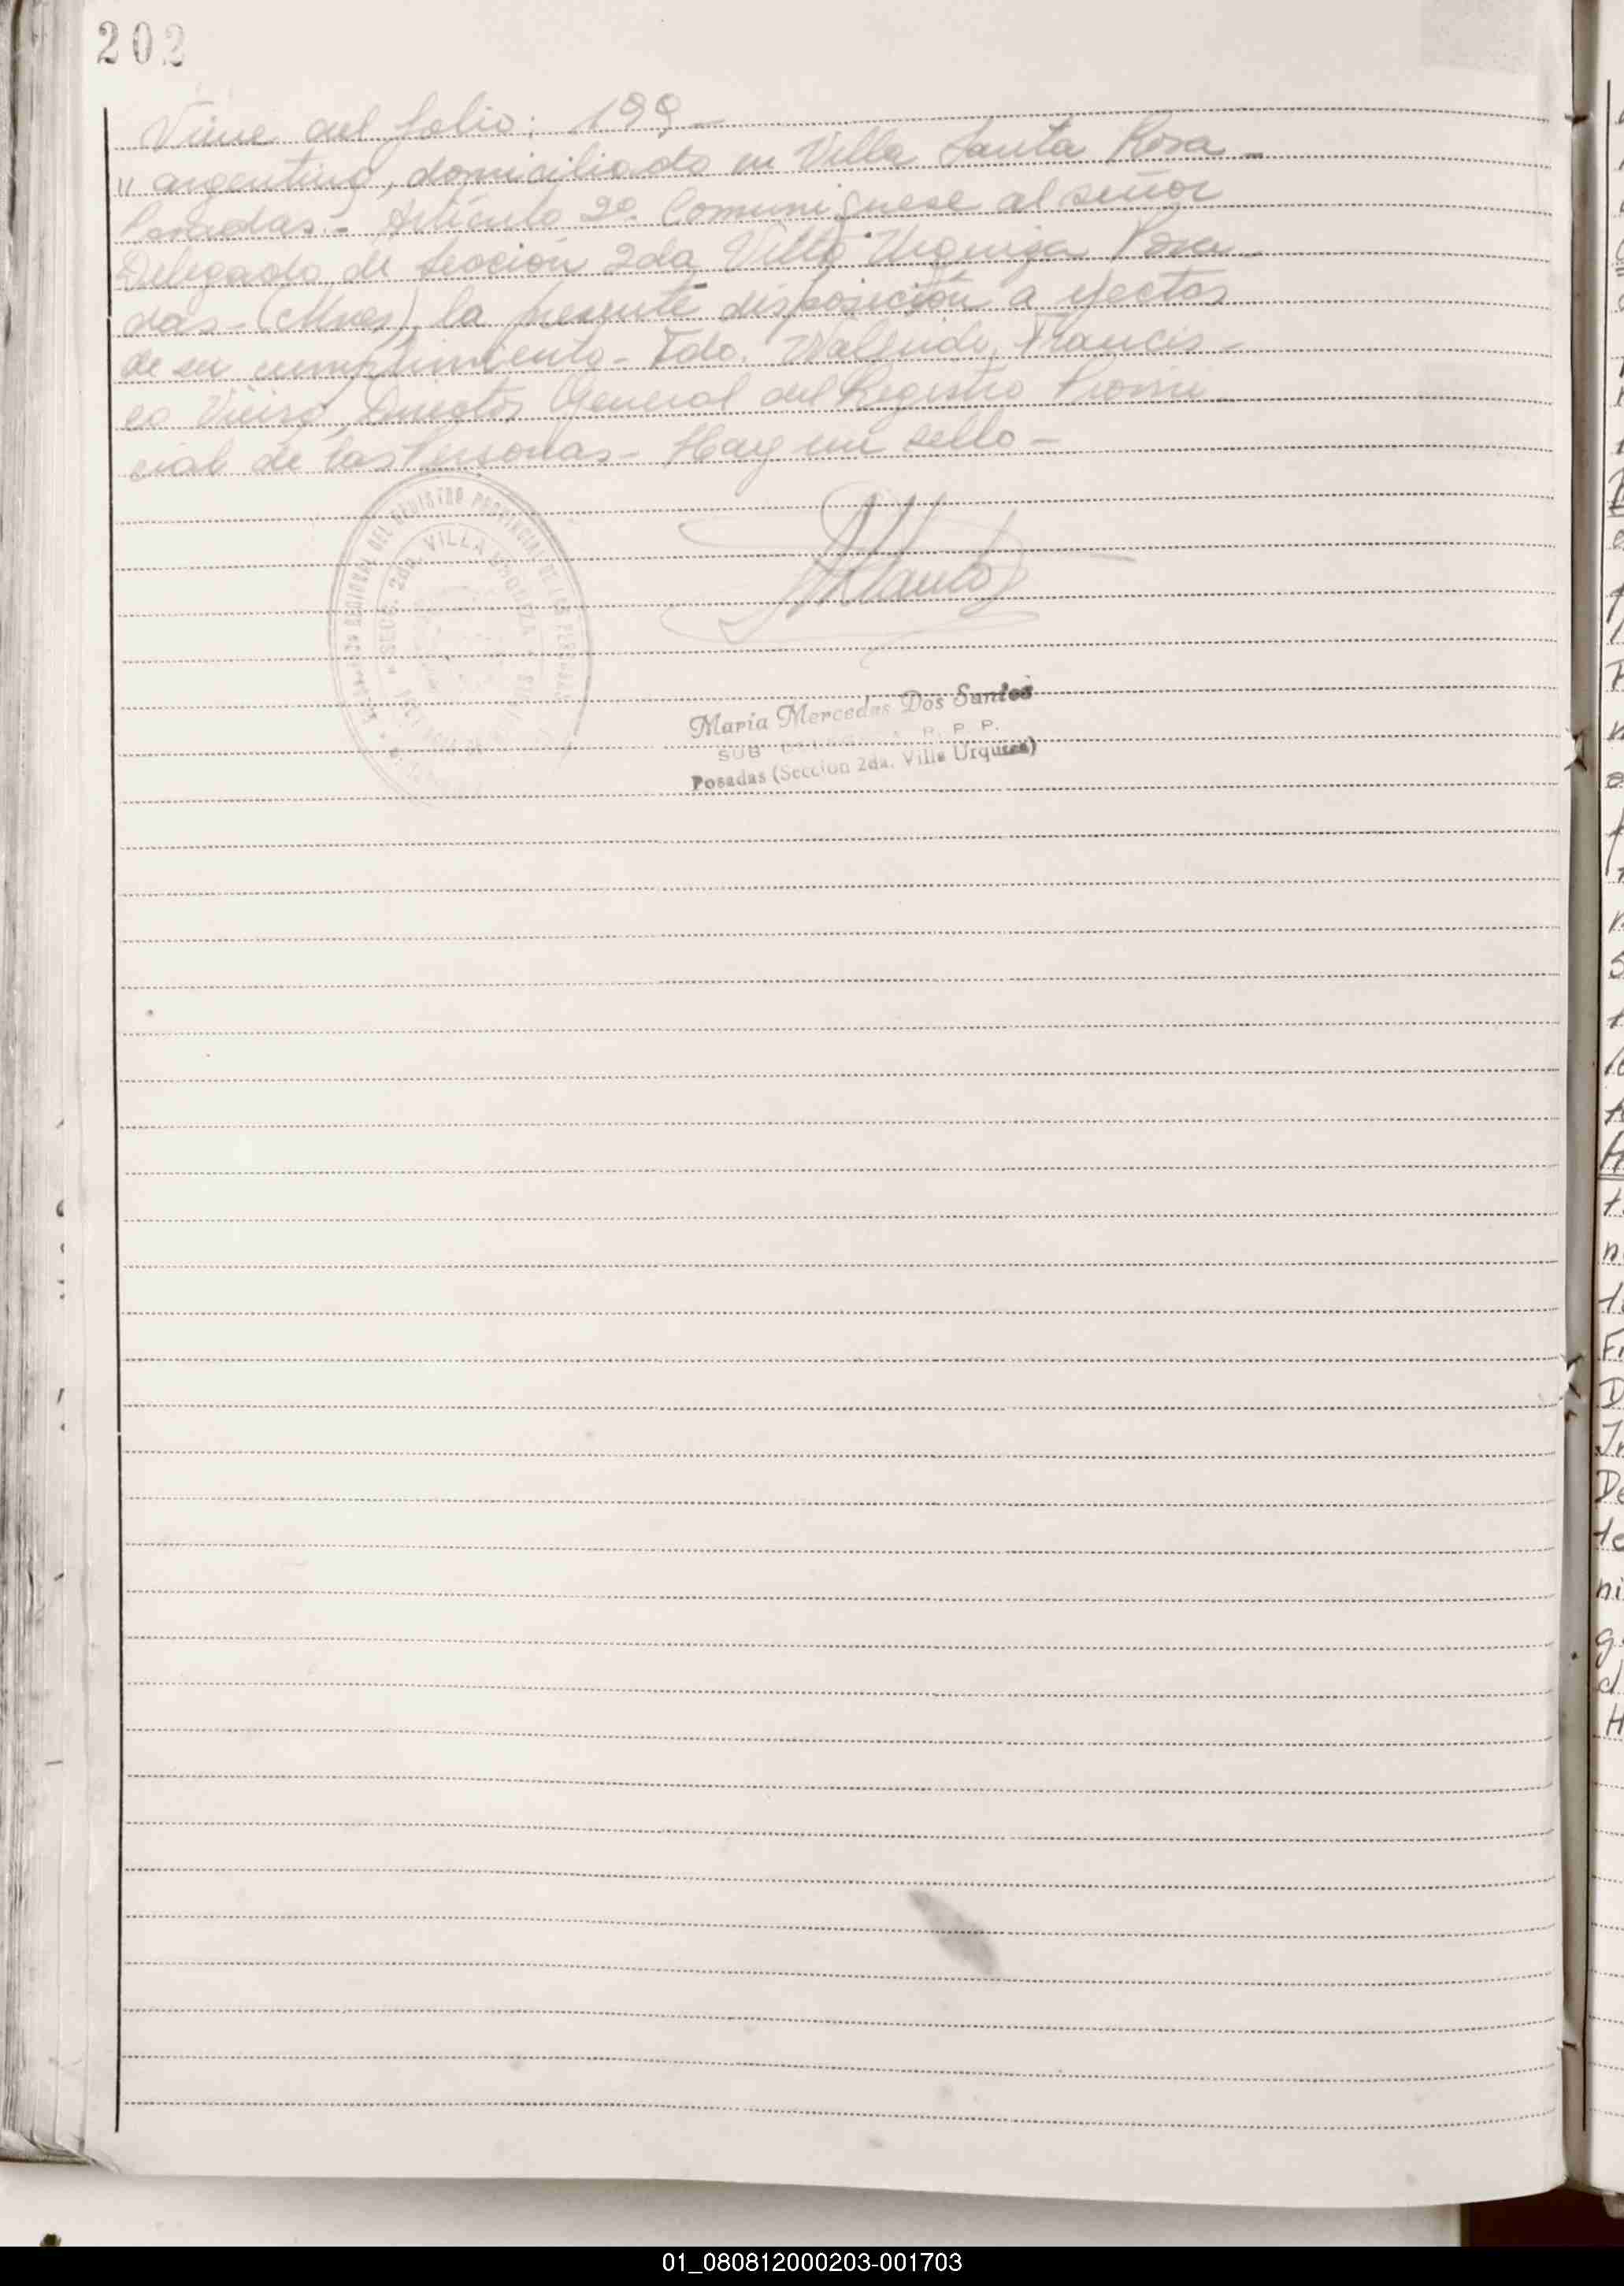 202
Viene del folio: 199-
" argentino, domiciliado en Villa Santa Rosa-
Posadas.- Artículo 2º. Comuníquese al señor
Delegado de Sección 2da Villa Urquiza Posa-
das-(Mnes), la presente disposición a efectos
de su cumplimiento- Fdo. Francis-
co Vieira, Director General del Registro Provin-
cial de las Personas- Hay un sello-
REGIONAL DEL REGISTRO PROVINCIAL DE LAS PERSONAS
SECC. 2da VILLA URQUIZA
María Mercedes Dos Santos
SUB R. P. P.
Posadas (Sección 2da. Villa Urquiza)
01_080812000203-001703